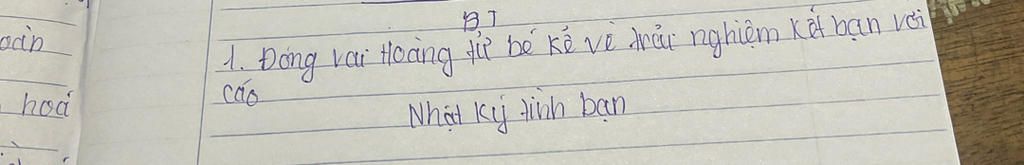 BT
oàn
1. Đóng vai Hoàng tử bé kể về trải nghiệm kết bạn với
cáo
hoá
Nhật ký tình bạn